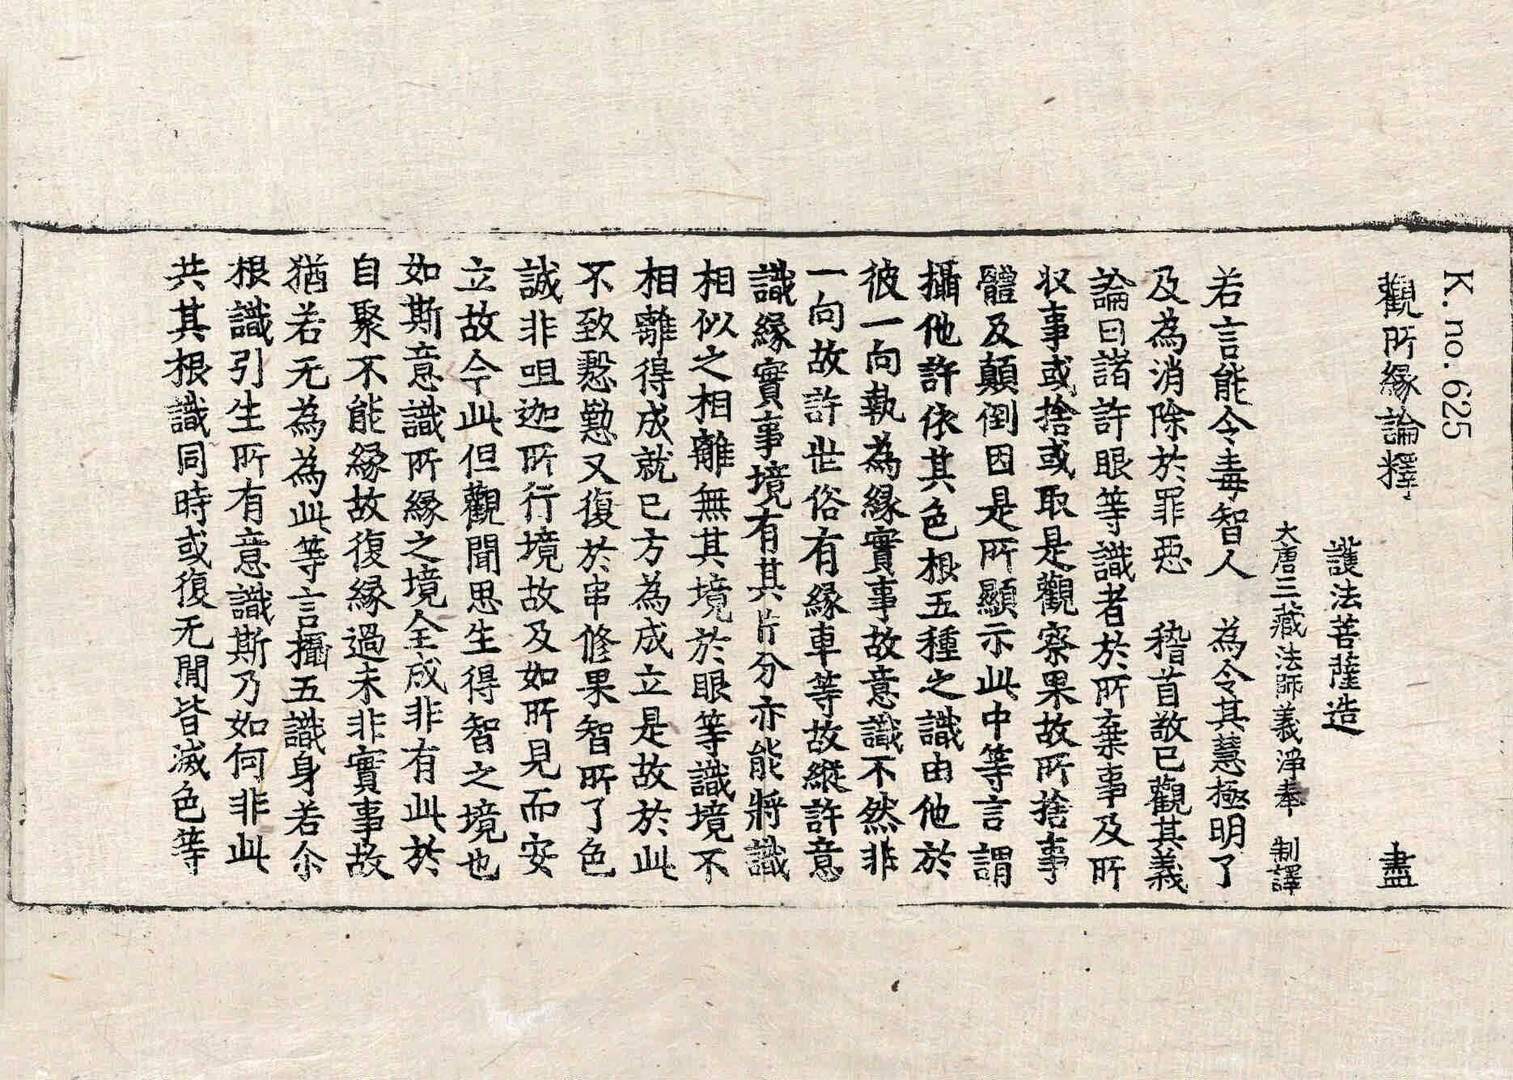 K.no.625
觀所緣論釋 盡
護法菩薩造
大唐三藏法師義淨奉 制譯
若言能令毒智人 為令其慧極明了
及為消除於罪惡 稽首敬已觀其義
論曰諸許眼等識者於所棄事及所
収事或捨或取是觀察果故所捨事
體及顛倒因是所顯示此中等言謂
攝他許依其色根五種之識由他於
彼一向執為緣實事故意識不然非
一向故許世俗有緣車等故縱許意
識緣實事境有其片分亦能將識
相似之相離無其境於眼等識境不
相離得成就已方為成立是故於此
不致慇懃又復於串修果智所了色
誠非呾迦所行境故及如所見而安
立故今此但觀聞思生得智之境也
如斯意識所緣之境全成非有此於
自聚不能緣故復緣過未非實事故
猶若无為為此等言攝五識身若尒
根識引生所有意識斯乃如何非此
共其根識同時或復无間皆滅色等